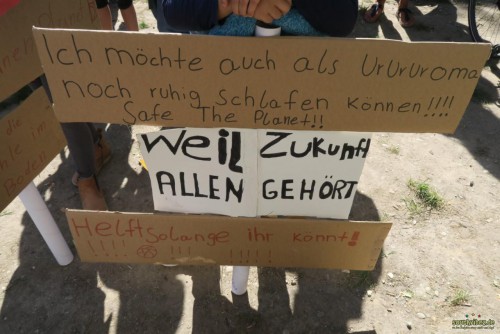 Ich möchte auch als Urururoma
noch ruhig schlafen können!!!!
Safe The Planet!!
Weil Zukunft
ALLEN GEHÖRT
Helft solange ihr könnt!
die